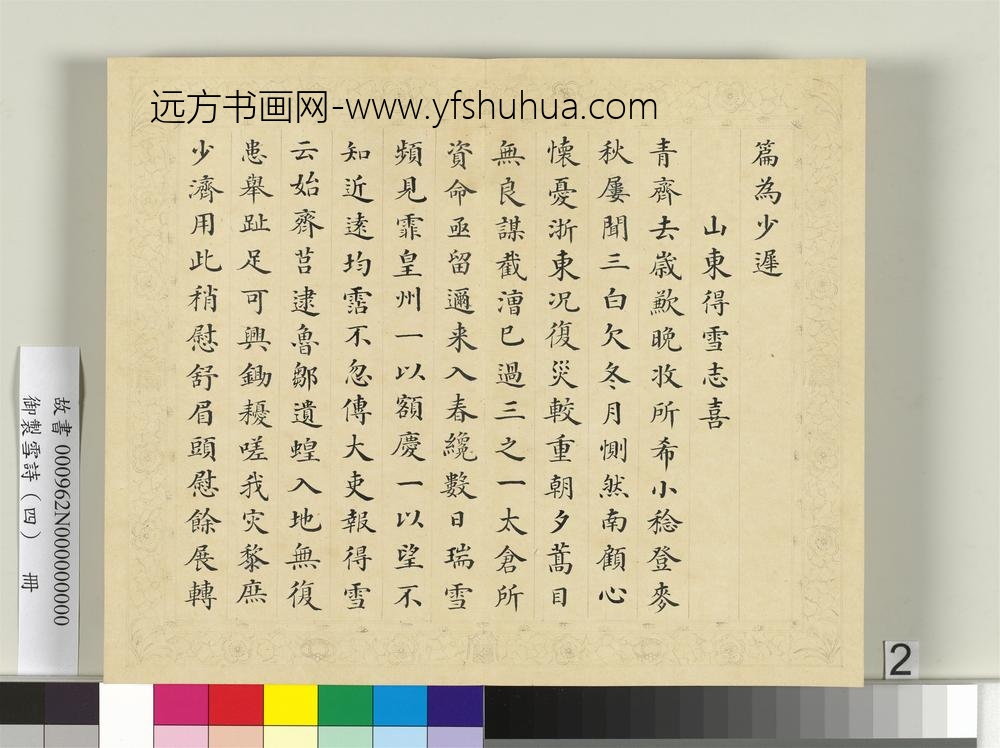 远方书画网-www.yfshuhua.com
篇為少遲
山東得雪志喜
青齊去歲歉晚收所希小稔登麥
秋屢聞三白欠冬月惻然南顧心
懐憂浙東况復災較重朝夕蒿目
無良謀截漕已過三之一太倉所
資命亟留邇来入春纔數日瑞雪
頻見霏皇州一以額慶一以望不
知近逺均霑不忽傳大吏報得雪
云始齊莒逮魯鄒遺蝗入地無復
患舉趾足可興鋤耰嗟我灾黎庶
少濟用此稍慰舒眉頭慰餘展轉
故書 000962N000000000
御製雪詩（四） 冊
2